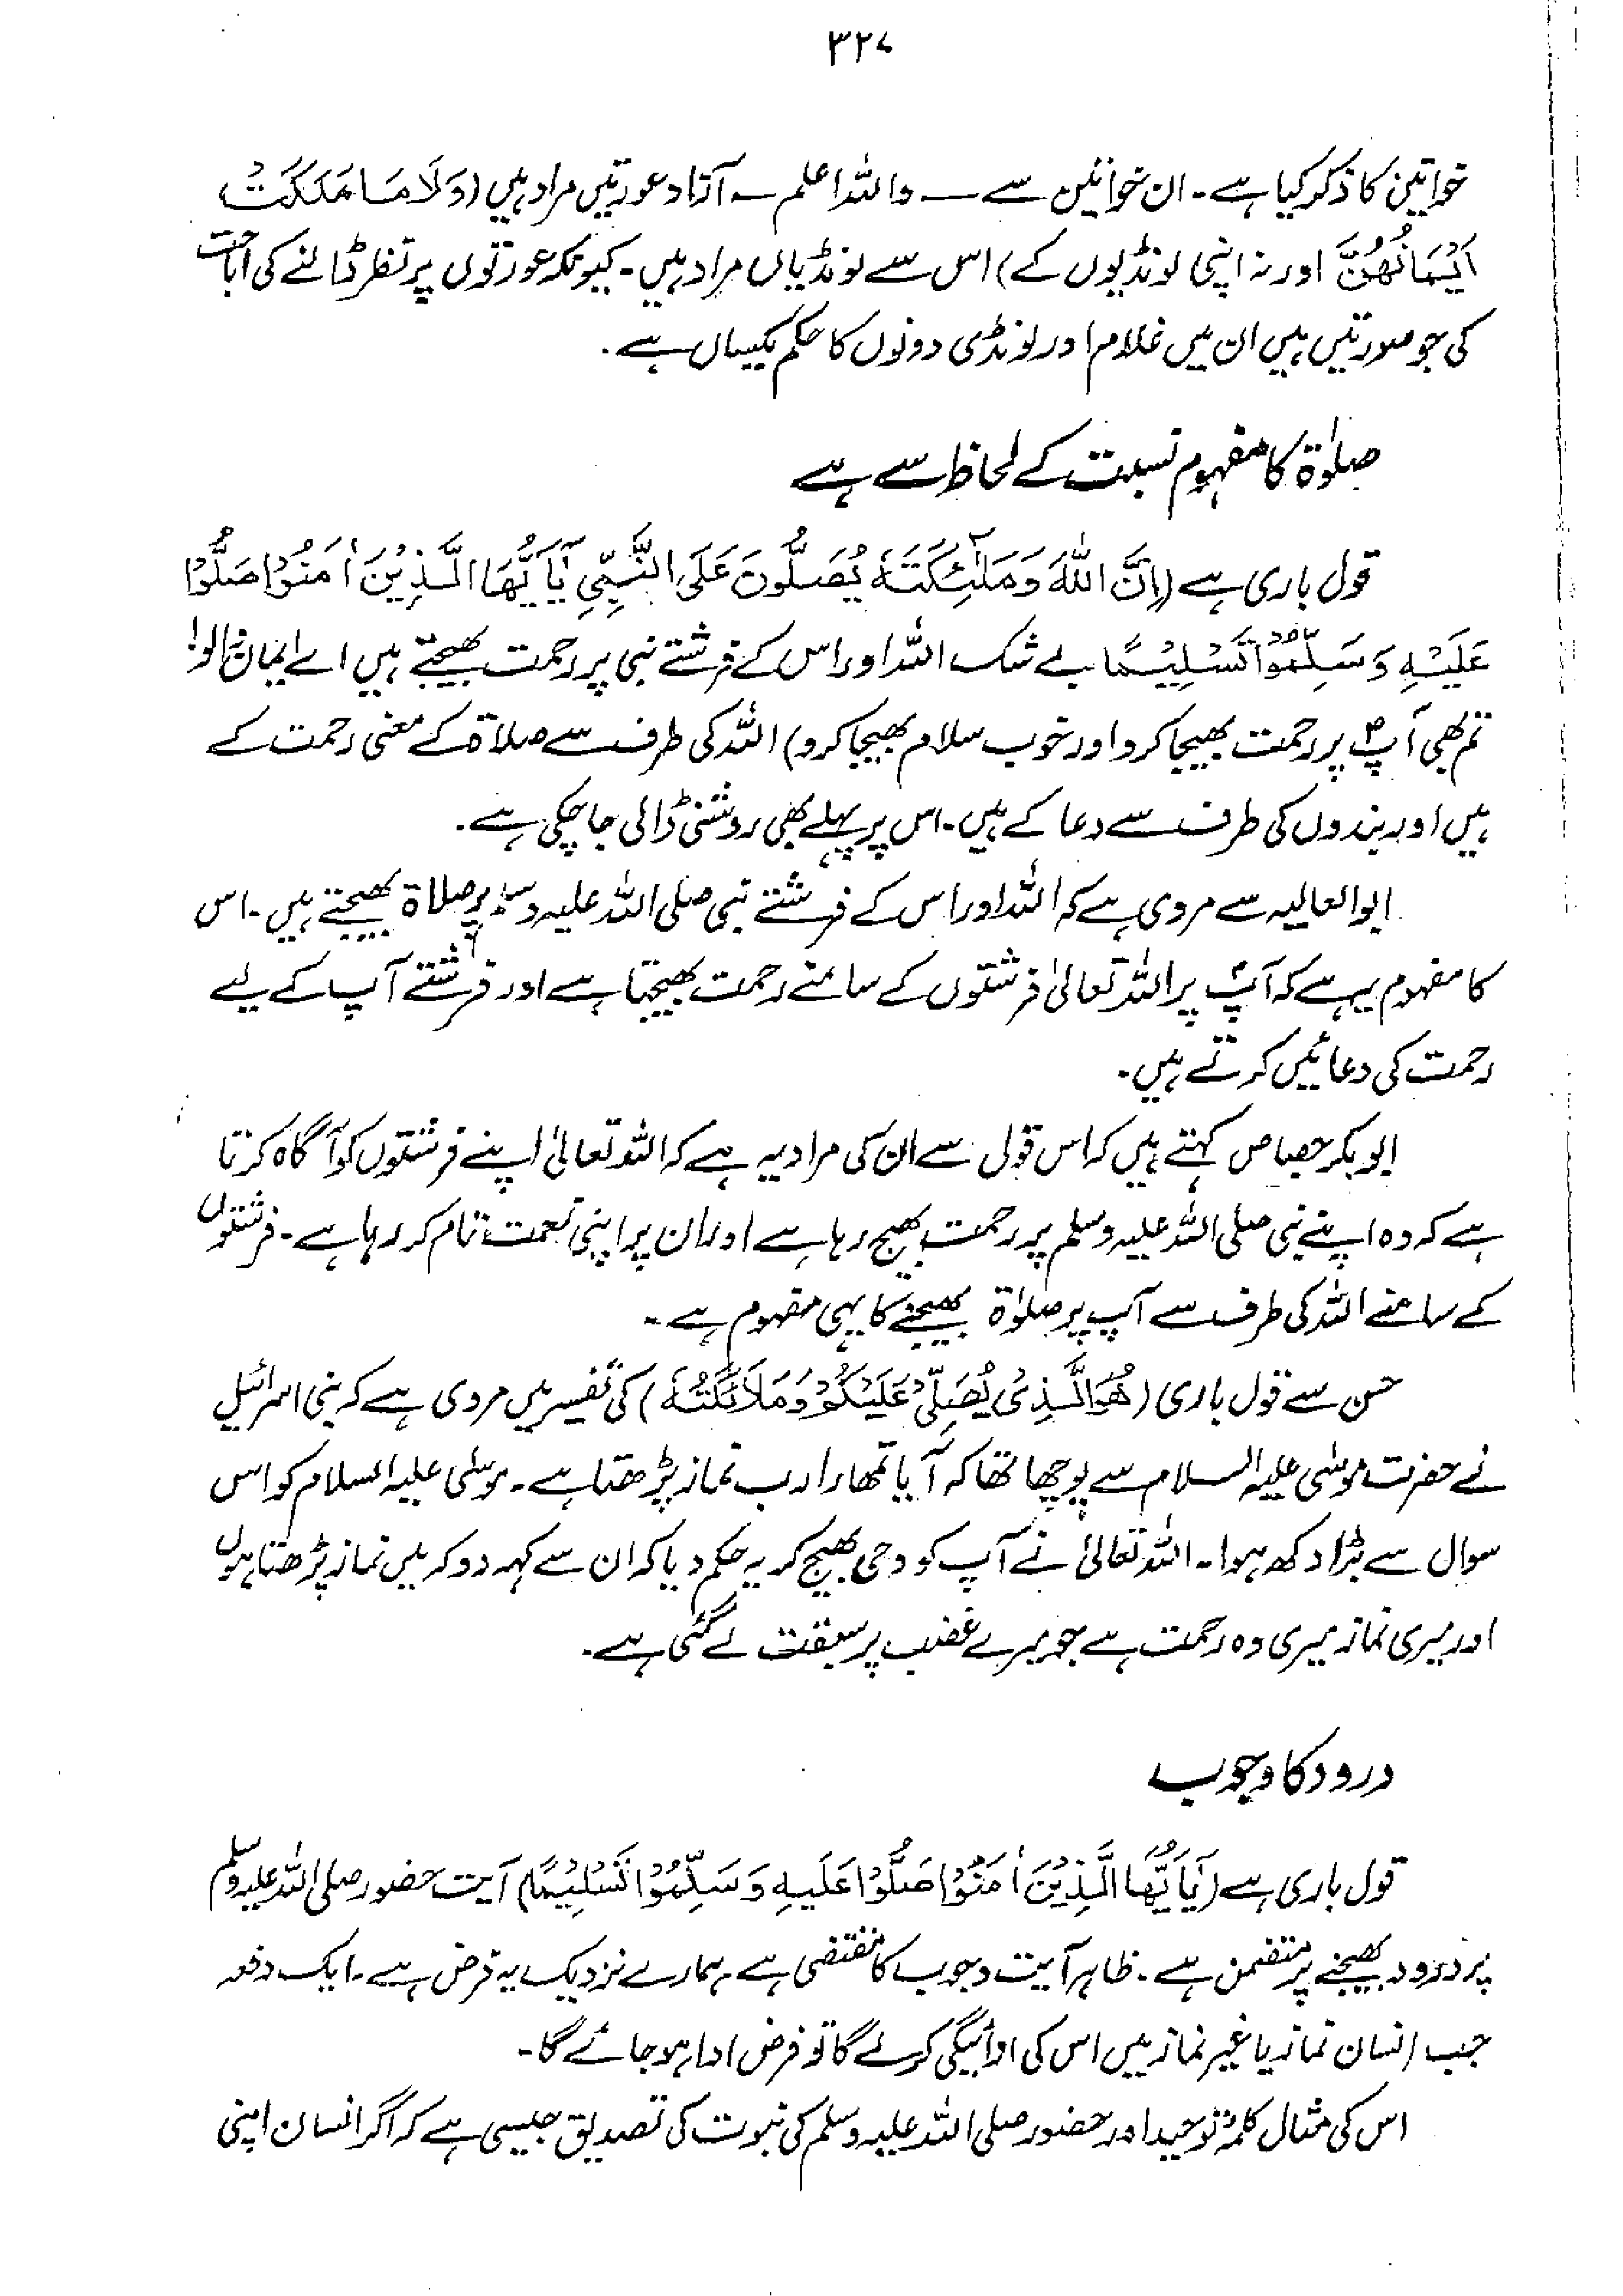 ۳۲۷
خواتین کا ذکر کیا ہے۔ ان خواتین سے ــ واللہ اعلم ــ آزاد عورتیں مراد ہیں (وَلَا مَا مَلَكَتْ
اَيْمَانُهُنَّ اور نہ اپنی لونڈیوں کے) اس سے لونڈیاں مراد ہیں۔ کیونکہ عورتوں پر نظر ڈالنے کی اباحت
کی جو صورتیں ہیں ان میں غلام اور لونڈی دونوں کا حکم یکساں ہے۔
صلوٰۃ کا مفہوم نسبت کے لحاظ سے ہے
قول باری ہے (اِنَّ اللّٰهَ وَمَلٰٓئِكَتَهٗ يُصَلُّونَ عَلَى النَّبِيِّ يٰٓاَيُّهَا الَّذِيْنَ اٰمَنُوْا صَلُّوْا
عَلَيْهِ وَسَلِّمُوْا تَسْلِيْمًا بے شک اللہ اور اس کے فرشتے نبی پر رحمت بھیجتے ہیں اے ایمان والو!
تم بھی آپؐ پر رحمت بھیجا کرو اور خوب سلام بھیجا کرو) اللہ کی طرف سے صلاۃ کے معنی رحمت کے
ہیں اور بندوں کی طرف سے دعا کے ہیں۔ اس پر پہلے بھی روشنی ڈالی جا چکی ہے۔
ابوالعالیہ سے مروی ہے کہ اللہ اور اس کے فرشتے نبی صلی اللہ علیہ وسلم پر صلاۃ بھیجتے ہیں۔ اس
کا مفہوم یہ ہے کہ آپؐ پر اللہ تعالیٰ فرشتوں کے سامنے رحمت بھیجتا ہے اور فرشتے آپ کے لیے
رحمت کی دعائیں کرتے ہیں۔
ابوبکر جصاص کہتے ہیں کہ اس قول سے ان کی مراد یہ ہے کہ اللہ تعالیٰ اپنے فرشتوں کو آگاہ کرتا
ہے کہ وہ اپنے نبی صلی اللہ علیہ وسلم پر رحمت بھیج رہا ہے اور ان پر اپنی نعمت تمام کر رہا ہے۔ فرشتوں
کے سامنے اللہ کی طرف سے آپ پر صلوٰۃ بھیجنے کا یہی مفہوم ہے۔
حسن سے قول باری (هُوَ الَّذِيْ يُصَلِّيْ عَلَيْكُمْ وَمَلَائِكَتُهٗ) کی تفسیر میں مروی ہے کہ بنی اسرائیل
نے حضرت موسٰی علیہ السلام سے پوچھا تھا کہ آیا تمھارا رب نماز پڑھتا ہے۔ موسٰی علیہ السلام کو اس
سوال سے بڑا دکھ ہوا۔ اللہ تعالیٰ نے آپ کو وحی بھیج کر یہ حکم دیا کہ ان سے کہہ دو کہ میں نماز پڑھتا ہوں
اور میری نماز میری وہ رحمت ہے جو میرے غضب پر سبقت لے گئی ہے۔
درود کا وجوب
قول باری ہے (يٰٓاَيُّهَا الَّذِيْنَ اٰمَنُوْا صَلُّوْا عَلَيْهِ وَسَلِّمُوْا تَسْلِيْمًا) آیت حضور صلی اللہ علیہ وسلم
پر درود بھیجنے پر متضمن ہے۔ ظاہر آیت وجوب کا مقتضی ہے۔ ہمارے نزدیک یہ فرض ہے۔ ایک دفعہ
جب انسان نماز یا غیر نماز میں اس کی ادائیگی کرلے گا تو فرض ادا ہو جائے گا۔
اس کی مثال کلمۂ توحید اور حضور صلی اللہ علیہ وسلم کی نبوت کی تصدیق جیسی ہے کہ اگر انسان اپنی